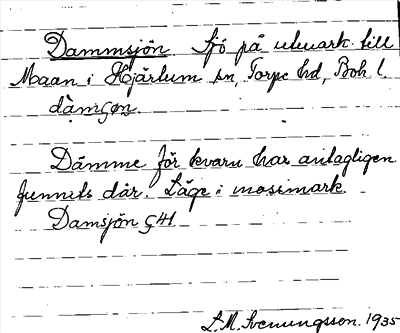 Dammsjön Sjö på utmark till
Maan i Hjärtum sn, Torpe hd, Boh l.
dàmʃøn.
Dämme för kvarn har antagligen
funnits där. Läge i mossmark.
Damsjön G41
L.M. Svenungsson. 1935